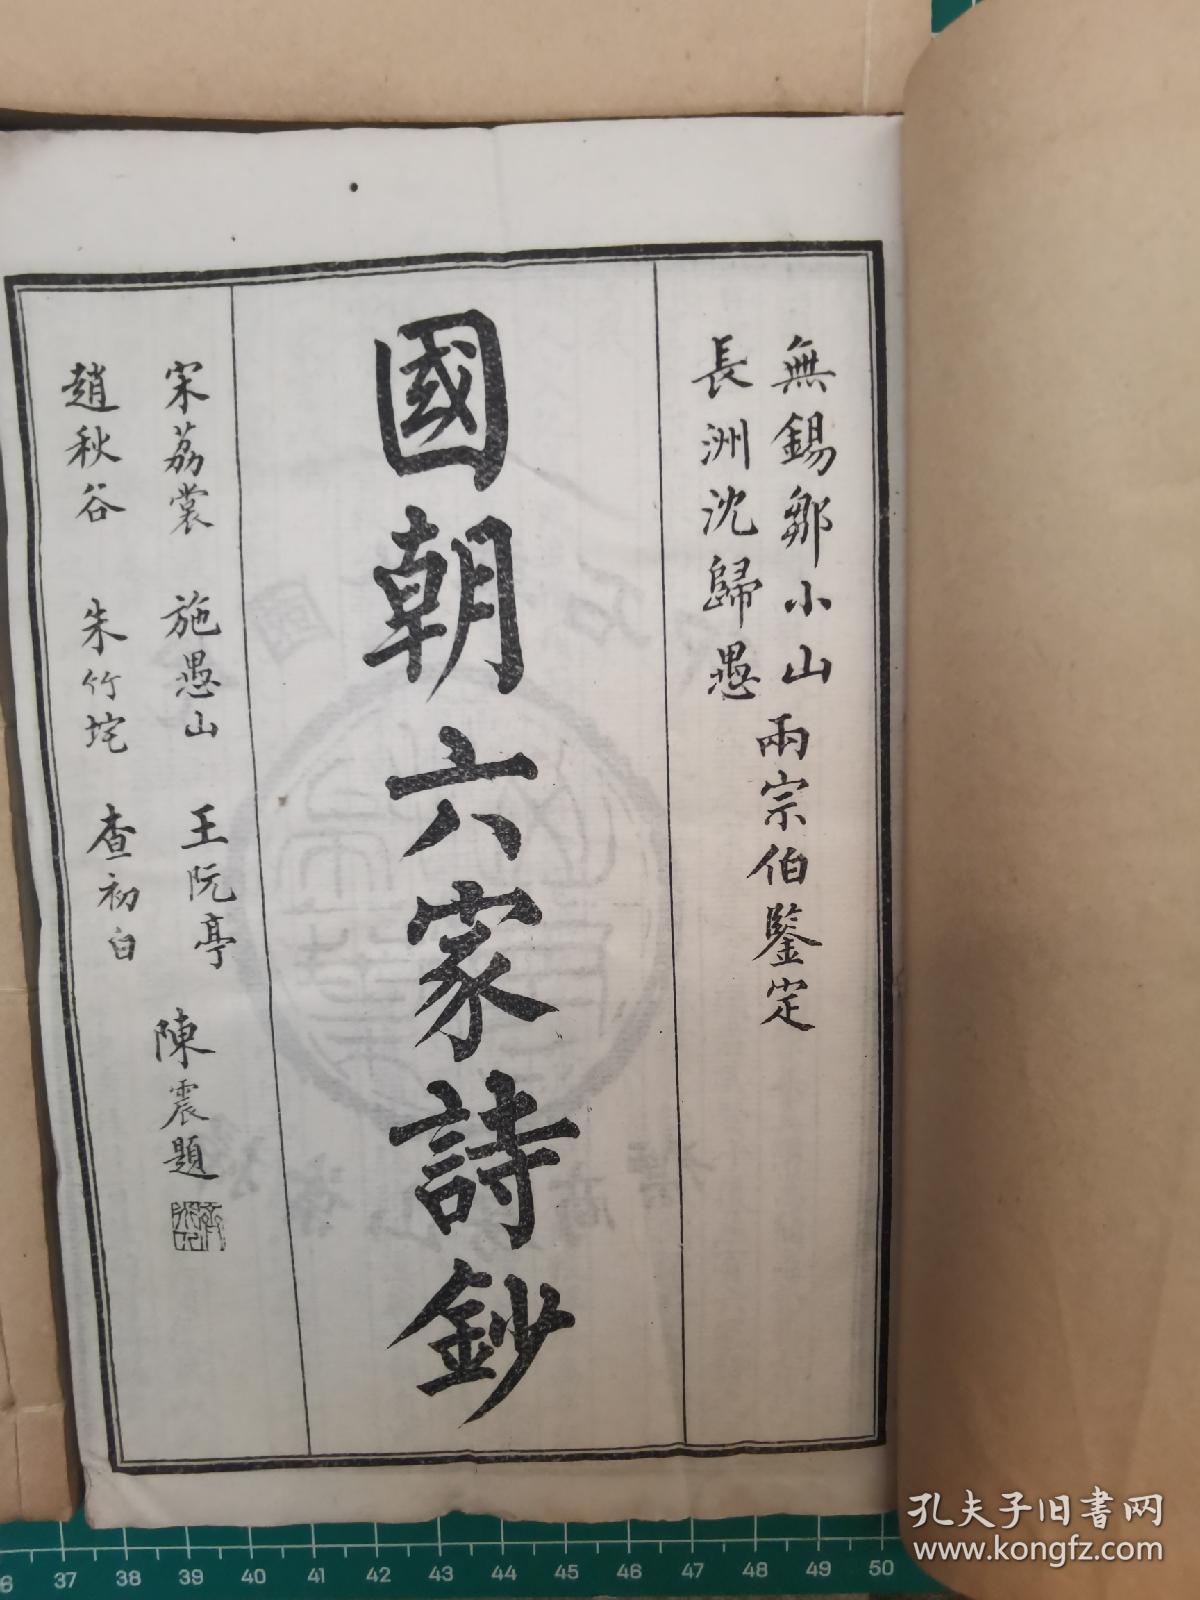 無錫鄒小山
長洲沈歸愚
兩宗伯鑒定
國朝六家詩鈔
宋荔裳 施愚山 王阮亭
趙秋谷 朱竹垞 查初白
陳震題
孔夫子旧书网
www.kongfz.com
37 38 39 40 41 42 43 44 45 46 47 48 49 50